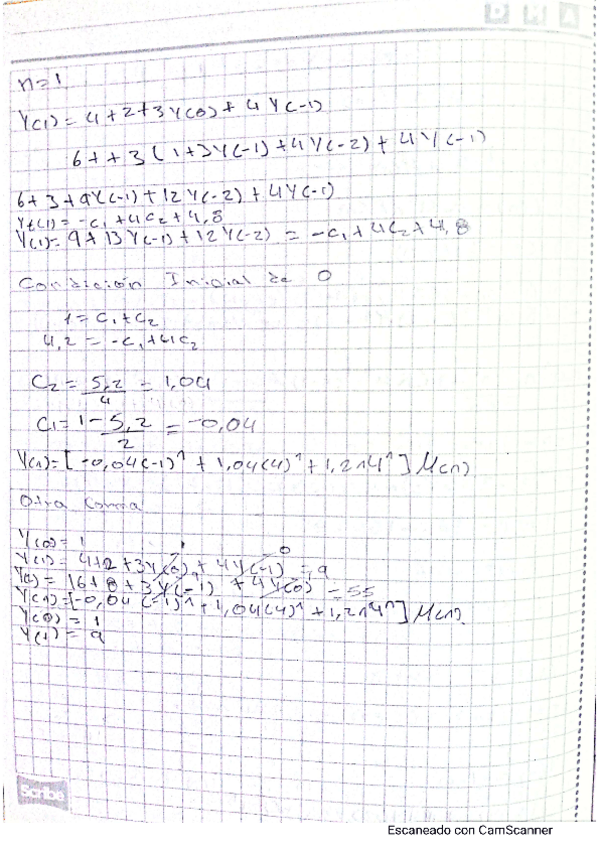 D M A
n=1
Y(1) = 4+2+3Y(0)+4Y(-1)
6++3(1+3Y(-1)+4Y(-2)+4Y(-1)
6+3+9Y(-1)+12Y(-2)+4Y(-1)
Yt(1)= -C₁+4C₂+4,8
Y(1)= 9+13Y(-1)+12Y(-2) = -C₁+4C₂+4,8
Condición Inicial de 0
1=C₁+C₂
4,2 = -C₁+4C₂
C₂ = 5,2/4 = 1,04
C₁= 1-5,2/2 = -0,04
Y(n)=[-0,04(-1)ⁿ + 1,04(4)ⁿ + 1,2n4ⁿ] μ(n)
Otra forma
Y(0)=1
1 0
Y(1)= 4+2+3Y(0)+4Y(-1) = 9
= 16+8+3Y(-1)+4Y(0) = 55
Y(n)=[-0,04(-1)ⁿ+1,04(4)ⁿ+1,2n4ⁿ] μ(n).
Y(0) = 1
Y(1) = 9
Scribe
Escaneado con CamScanner